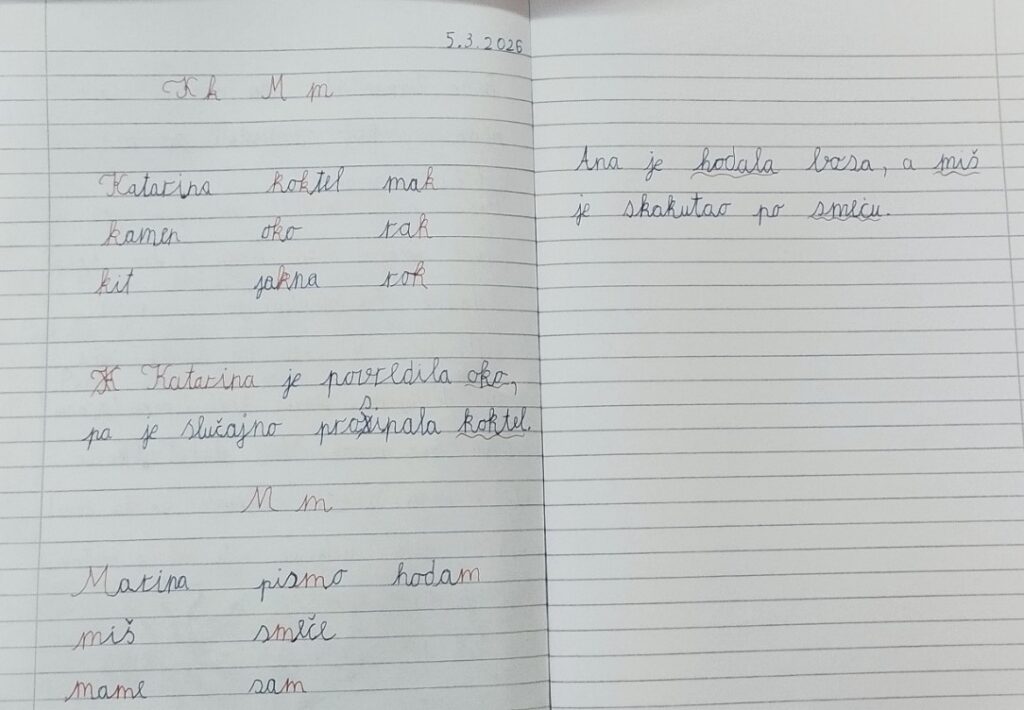 5.3.2026
Kk Mm
Katarina koktel mak
kamen oko rak
kit jakna rok
Katarina je povredila oko,
pa je slučajno prosipala koktel.
M m
Marina pismo hodam
miš smeće
mame sam
Ana je hodala bosa, a miš
je skakutao po smeću.